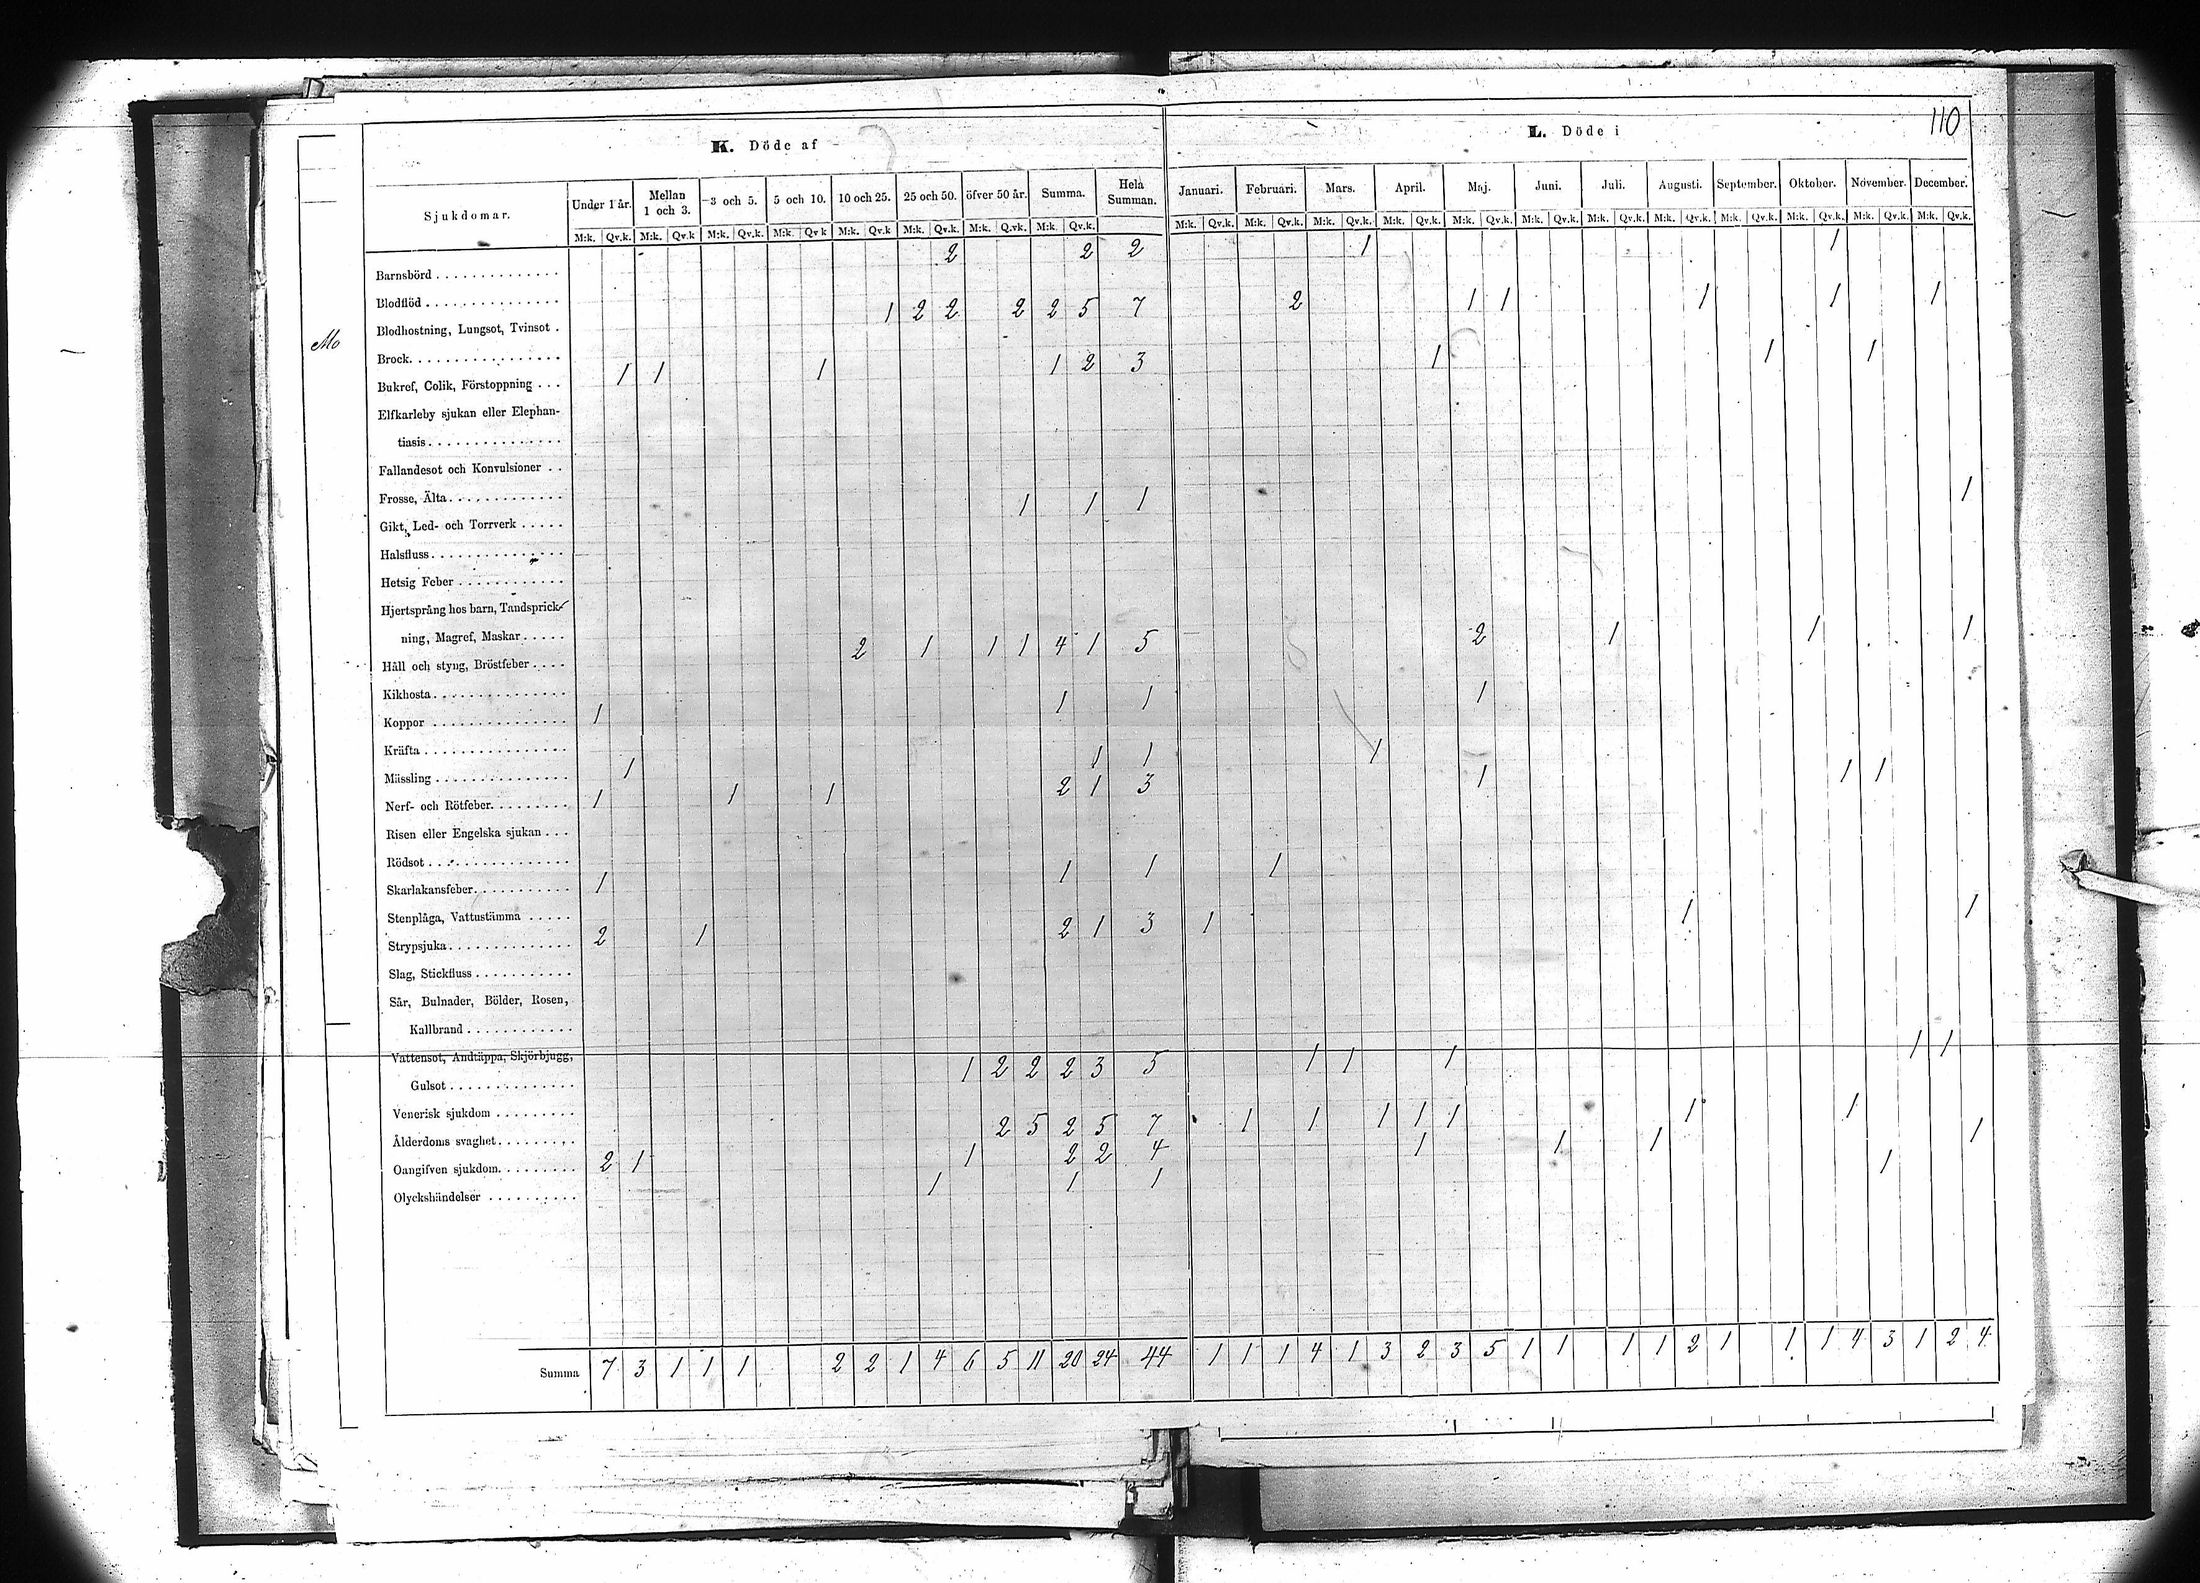 110
K. Döde af
L. Döde i
Sjukdomar. Under 1 år. Mellan 1 och 3. 3 och 5. 5 och 10. 10 och 25. 25 och 50. öfver 50 år. Summa. Hela Summan. Januari. Februari. Mars. April. Maj. Juni. Juli. Augusti. September. Oktober. November. December.
M:k. Qv.k. M:k. Qv.k M:k. Qv.k. M:k. Qv k M:k. Qv.k M:k. Qv.k. M:k. Q.vk. M:k. Qv.k. M:k. Qv.k. M:k. Qv.k. M:k. Qv.k. M:k. Qv.k. M:k. Qv.k. M:k. Qv.k. M:k. Qv.k. M:k. Qv.k. M:k. Qv.k. M:k. Qv.k. M:k. Qv.k. M:k. Qv.k.
Barnsbörd 2 2 2 1 1
Blodflöd
Blodhostning, Lungsot, Tvinsot . 1 2 2 2 2 5 7 2 1 1 1 1 1
Mo
Brock
Bukref, Colik, Förstoppning . . . 1 1 1 1 2 3 1 1 1
Elfkarleby sjukan eller Elephan-
tiasis
Fallandesot och Konvulsioner . .
Frosse, Älta
Gikt, Led- och Torrverk 1 1 1 1
Halsfluss
Hetsig Feber
Hjertsprång hos barn, Tandsprick-
ning, Magref, Maskar
Håll och styng, Bröstfeber 2 1 1 1 4 1 5 2 1 1 1
Kikhosta
Koppor 1 1 1 1
Kräfta
Mässling 1 1 1 1
Nerf- och Rötfeber 1 1 1 2 1 3 1 1 1
Risen eller Engelska sjukan . . .
Rödsot
Skarlakansfeber 1 1 1 1
Stenplåga, Vattustämma
Strypsjuka 2 1 2 1 3 1 1 1
Slag, Stickfluss
Sår, Bulnader, Bölder, Rosen,
Kallbrand
Vattensot, Andtäppa, Skjörbjugg,
Gulsot 1 2 2 2 3 5 1 1 1 1 1
Venerisk sjukdom
Ålderdoms svaghet 2 5 2 5 7 1 1 1 1 1 1 1
Oangifven sjukdom 2 1 1 2 2 4 1 1 1 1
Olyckshändelser 1 1 1 1
Summa 7 3 1 1 1 2 2 1 4 6 5 11 20 24 44 1 1 1 4 1 3 2 3 5 1 1 1 1 2 1 1 1 4 3 1 2 4